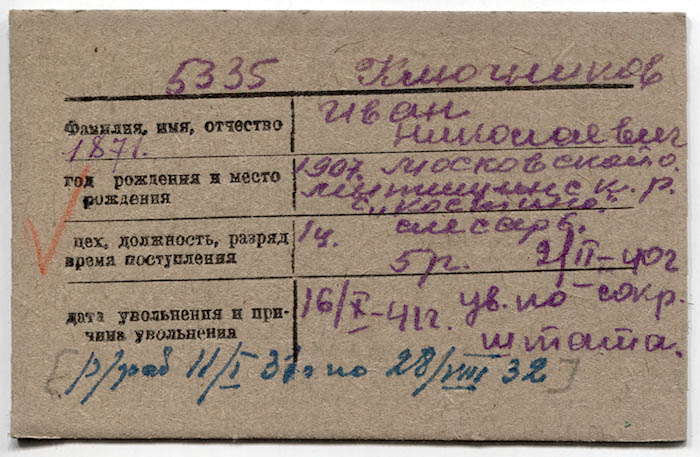 5335 Ключников
Фамилия, имя, отчество Иван
Николаевич
1871.
год рождения и место 1907. Московская о.
рождения Мытищинск. р.
с. „Костино"
цех, должность, разряд 1ц. слесарь.
время поступления 5 р. 2/II-40г
дата увольнения и при- 16/X-41г. ув. по сокр.
чина увольнения штата.
[р/раб 11/I 31г по 28/VIII 32]